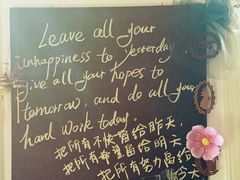 Leave all your
unhappiness to yesterday
give all your hopes to
tomorrow, and do all your
hard work today.
把所有不快留给昨天,
把所有希望留给明天
把所有努力留给
今天